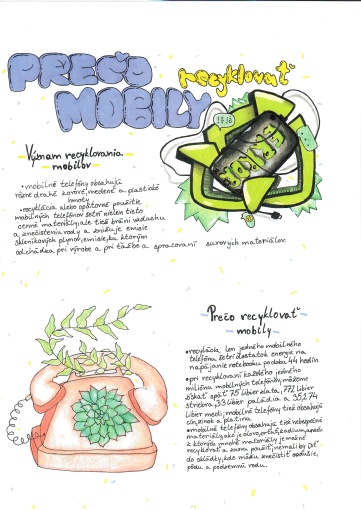 PREČO
recyklovať
MOBILY
Význam recyklovania
mobilov
•mobilné telefóny obsahujú
rôzne drahé kovové, medené a plastické
hmoty
•recyklácia alebo opätovné použitie
mobilných telefónov šetrí nielen tieto
cenné materiály, ale tiež bráni vzduchu
a znečisteniu vody a znižuje emisie
skleníkových plynov, emisie, ku ktorým
odchádza pri výrobe a pri ťažbe a spracovaní surových materiálov
Prečo recyklovať
mobily
•recyklácia len jedného mobilného
telefónu šetrí dostatok energie na
napájanie notebooku po dobu 44 hodín
•pri recyklovaní každého jedného
milióna mobilných telefónov, môžeme
získať späť 75 libier zlata, 772 libier
striebra, 33 libier paládia a 35,274
libier medi; mobilné telefóny tiež obsahujú
cín, zinok a platinu
•mobilné telefóny obsahujú tiež nebezpečné
materiály ako je olovo, ortuť, kadmium, arzén
z ktorých mnohé materiály je možné
recyklovať a znova použiť; nemali by ísť
do skládky, kde môžu znečistiť ovzdušie,
pôdu a podzemnú vodu.